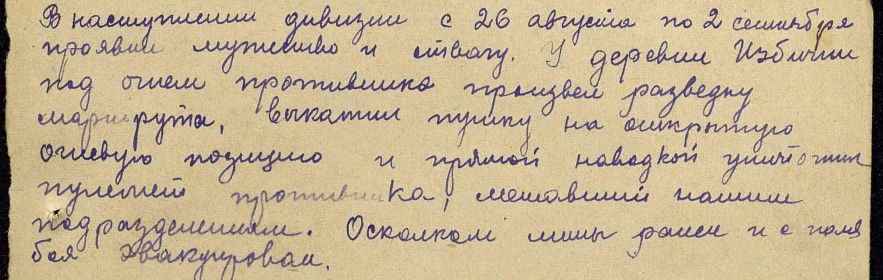 В наступлении дивизии с 26 августа по 2 сентября
проявил мужество и отвагу. У деревни Избични
под огнем противника произвел разведку
маршрута, выкатил пушку на открытую
огневую позицию и прямой наводкой уничтожил
пулемет противника, мешавший нашим
подразделениям. Осколком мины ранен и с поля
боя эвакуирован.